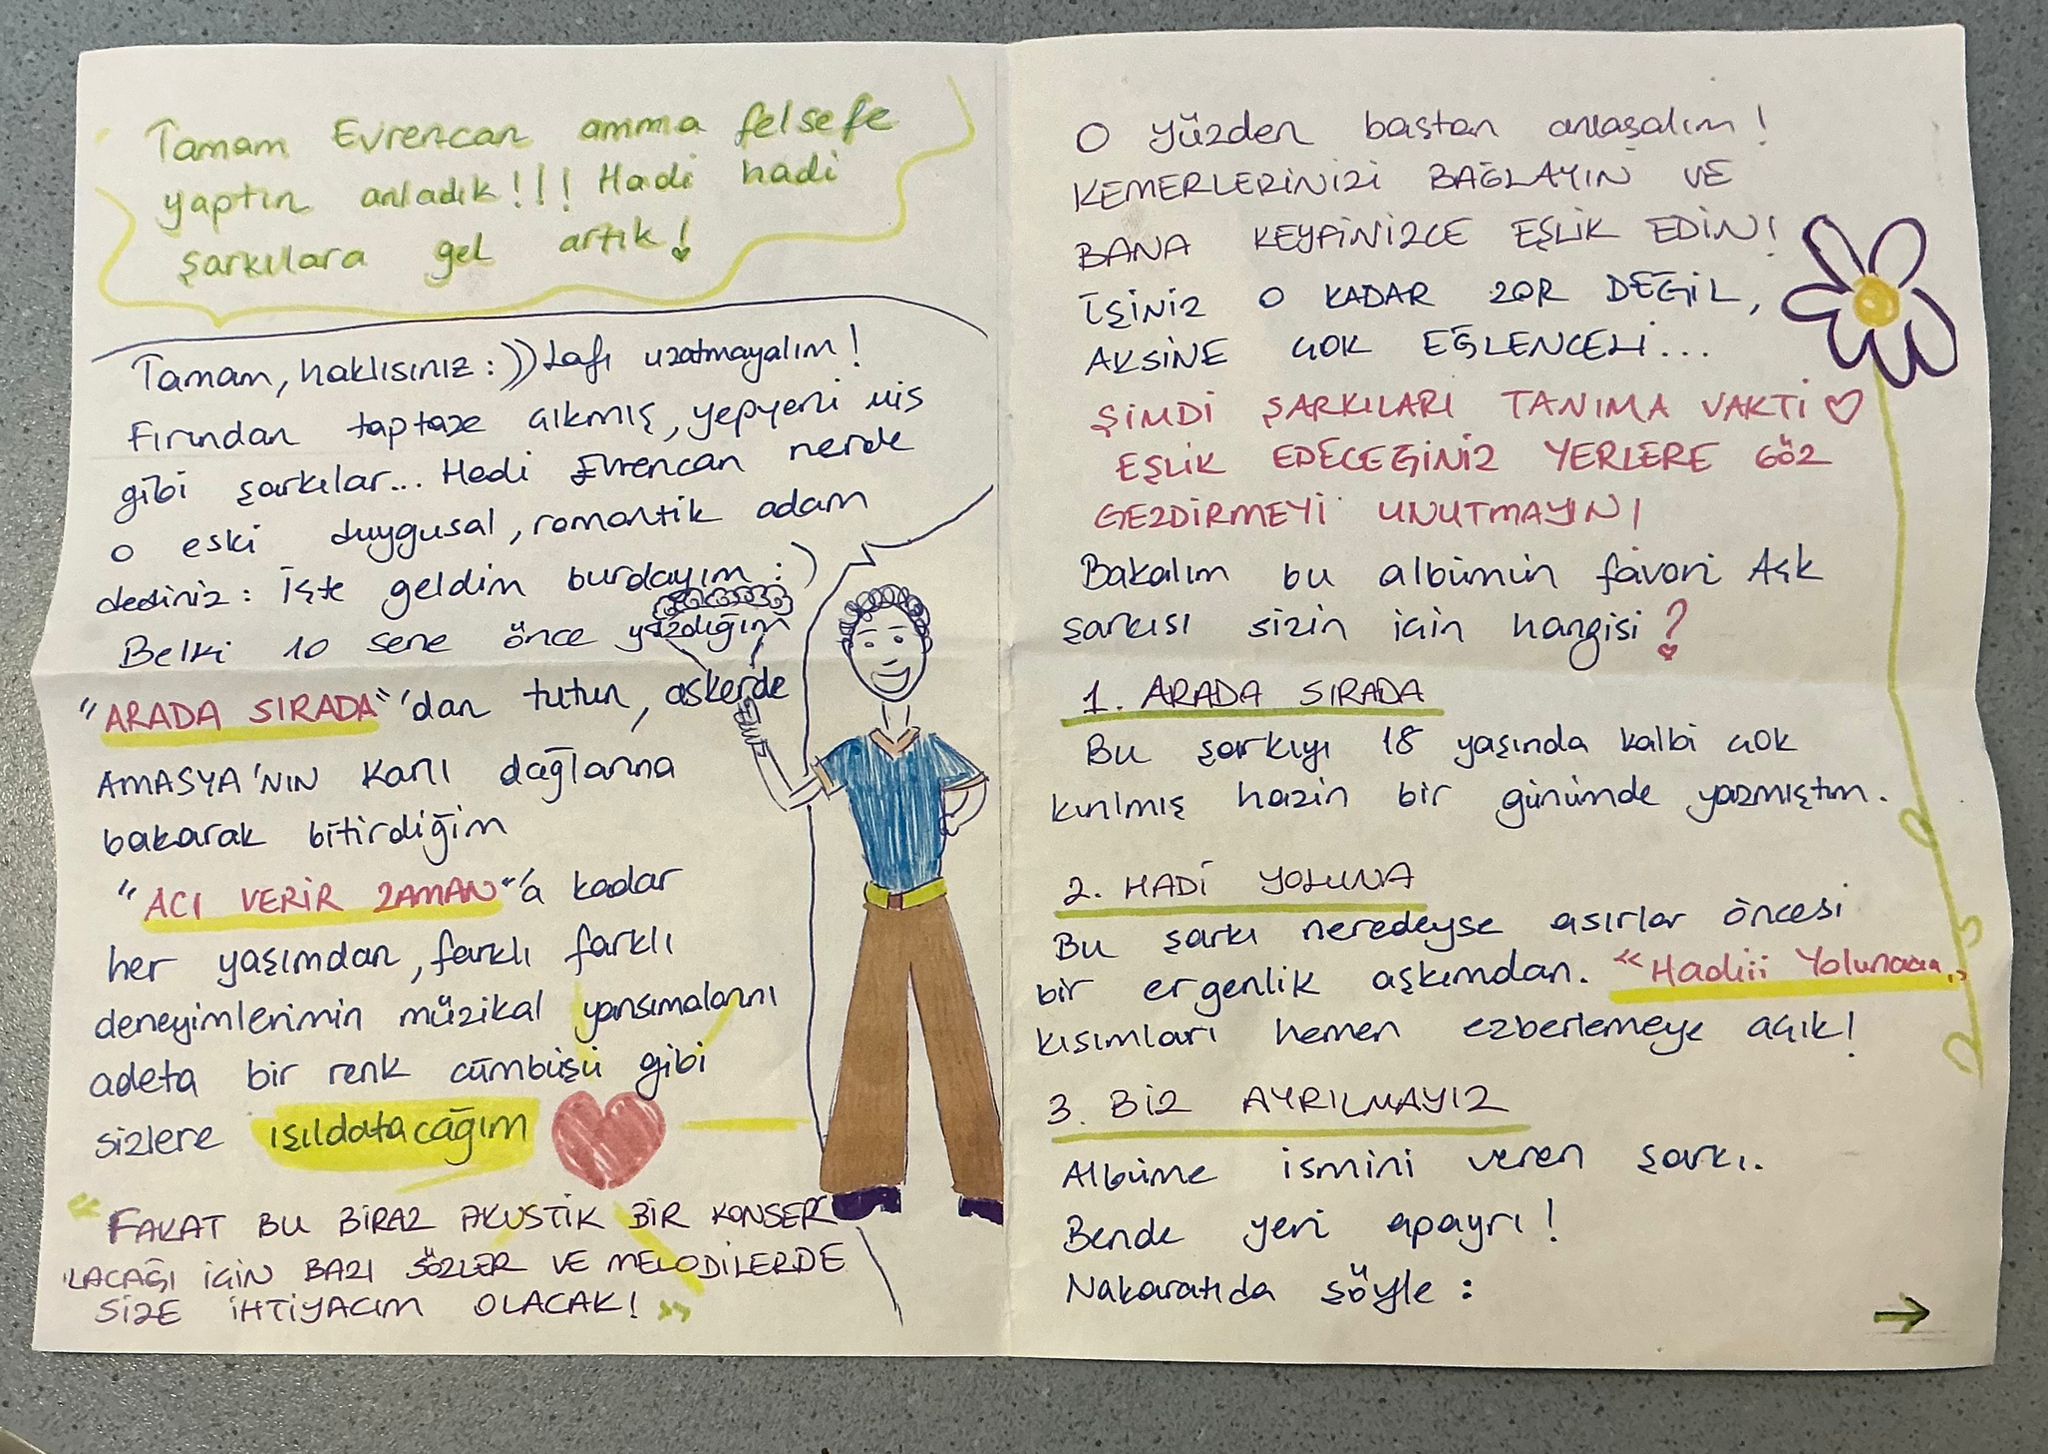 Tamam Evrencan amma felsefe
yaptın anladık!!! Hadi hadi
şarkılara gel artık!
Tamam, haklısınız :)) Lafı uzatmayalım!
Fırından taptaze çıkmış, yepyeni mis
gibi şarkılar... Hadi Evrencan nerde
o eski duygusal, romantik adam
dediniz: İşte geldim burdayım :)
Belki 10 sene önce yazdığım
"ARADA SIRADA"'dan tutun, askerde
AMASYA'NIN karlı dağlarına
bakarak bitirdiğim
"ACI VERİR ZAMAN"'a kadar
her yaşımdan, farklı farklı
deneyimlerimin müzikal yansımalarını
adeta bir renk cümbüşü gibi
sizlere ışıldatacağım
"FAKAT BU BİRAZ AKUSTİK BİR KONSER
OLACAĞI İÇİN BAZI SÖZLER VE MELODİLERDE
SİZE İHTİYACIM OLACAK!"
O yüzden baştan anlaşalım!
KEMERLERİNİZİ BAĞLAYIN VE
BANA KEYFİNİZCE EŞLİK EDİN!
İŞİNİZ O KADAR ZOR DEĞİL,
AKSİNE ÇOK EĞLENCELİ...
ŞİMDİ ŞARKILARI TANIMA VAKTİ ♡
EŞLİK EDECEĞİNİZ YERLERE GÖZ
GEZDİRMEYİ UNUTMAYIN!
Bakalım bu albümün favori Aşk
şarkısı sizin için hangisi?
1. ARADA SIRADA
Bu şarkıyı 18 yaşında kalbi çok
kırılmış hazin bir günümde yazmıştım.
2. HADİ YOLUNA
Bu şarkı neredeyse asırlar öncesi
bir ergenlik aşkımdan. "Hadiii Yolunaaa"
kısımları hemen ezberlemeye açık!
3. BİZ AYRILMAYIZ
Albüme ismini veren şarkı.
Bende yeri apayrı!
Nakaratıda şöyle :
→